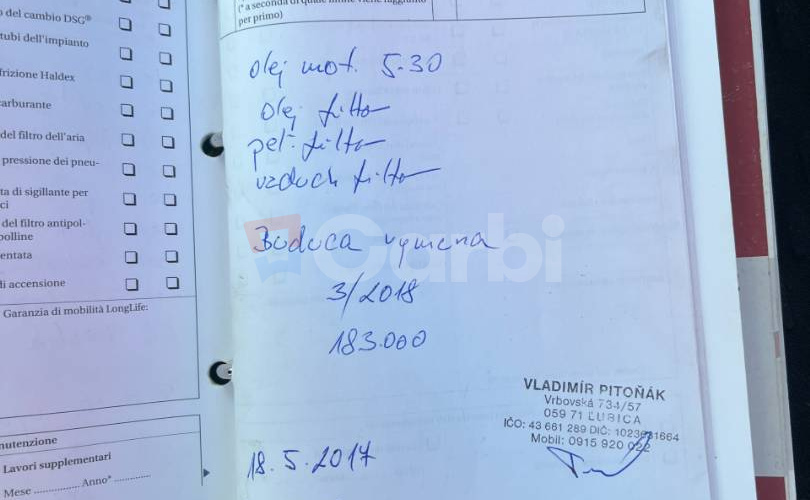 del cambio DSG®
tubi dell'impianto
frizione Haldex
carburante
del filtro dell'aria
pressione dei pneu-
ta di sigillante per
ci
del filtro antipol-
polline
entata
di accensione
Garanzia di mobilità LongLife:
nutenzione
Lavori supplementari
Mese ............... Anno* ...............
(* a seconda di quale limite viene raggiunto
per primo)
olej mot. 5-30
olej filter
pel. filter
vzduch filter
Buduca vymena
3/2018
183.000
18.5.2017
Garbi
VLADIMÍR PITOŇÁK
Vrbovská 734/57
059 71 ĽUBICA
IČO: 43 661 289 DIČ:
Mobil: 0915 920 022